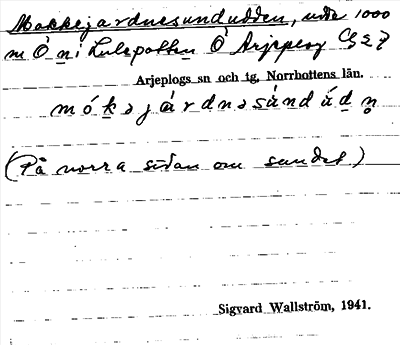 Mokkejardnesundudden, udde 1000
m Ö n i Luleputten Ö Arjeplog
Arjeplogs sn och tg, Norrbottens län.
(På norra sidan om sundet)
Sigvard Wallström, 1941.